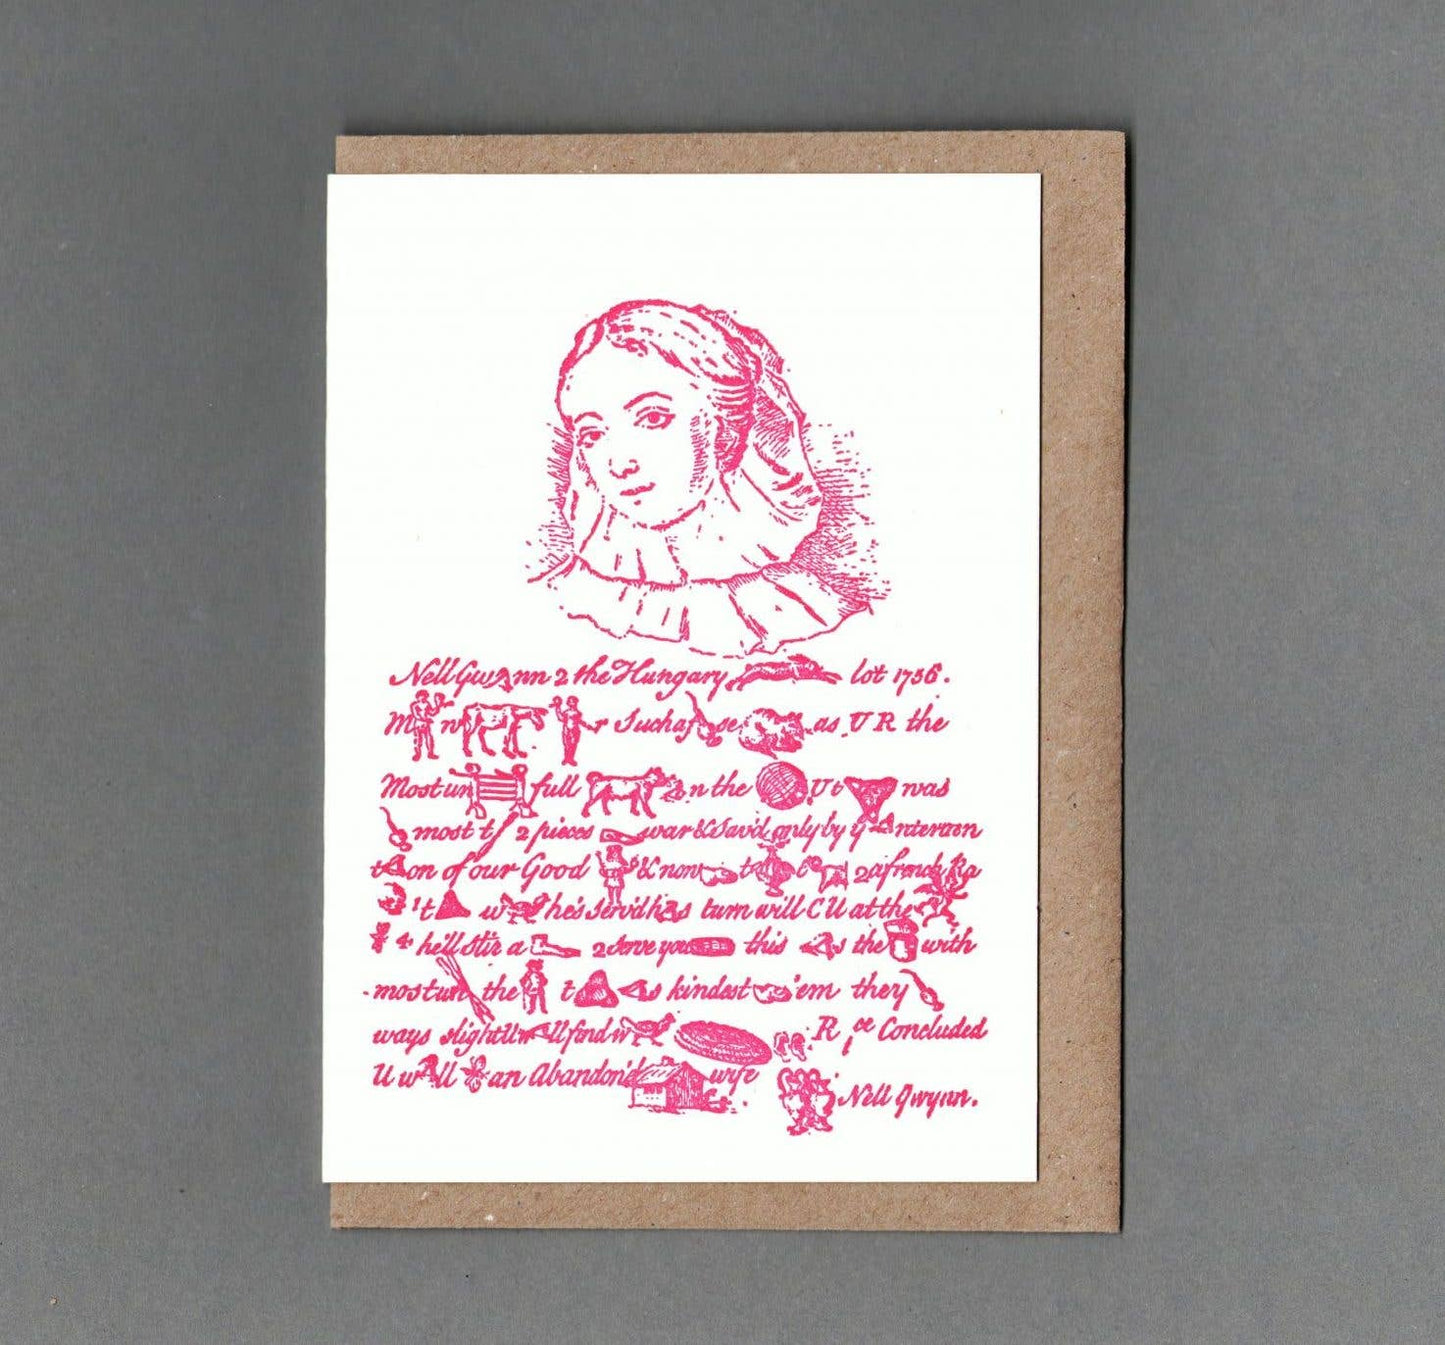 Nell Gw nn 2 the Hungary lot 1756.
M n r Such a se as U R the
Most un full n the U t was
most t 2 pieces war & Sav'd only by y nterven
t on of our Good & now t t 2 a french Ra
't w he's Serv'd h s turn will C U at the
4 he'll Stir a 2 Serve you this s the with
most un the t s kindest 'em they
ways slight U w ll find w R Concluded
U w ll an Abandon'd wife
Nell Gwynn.